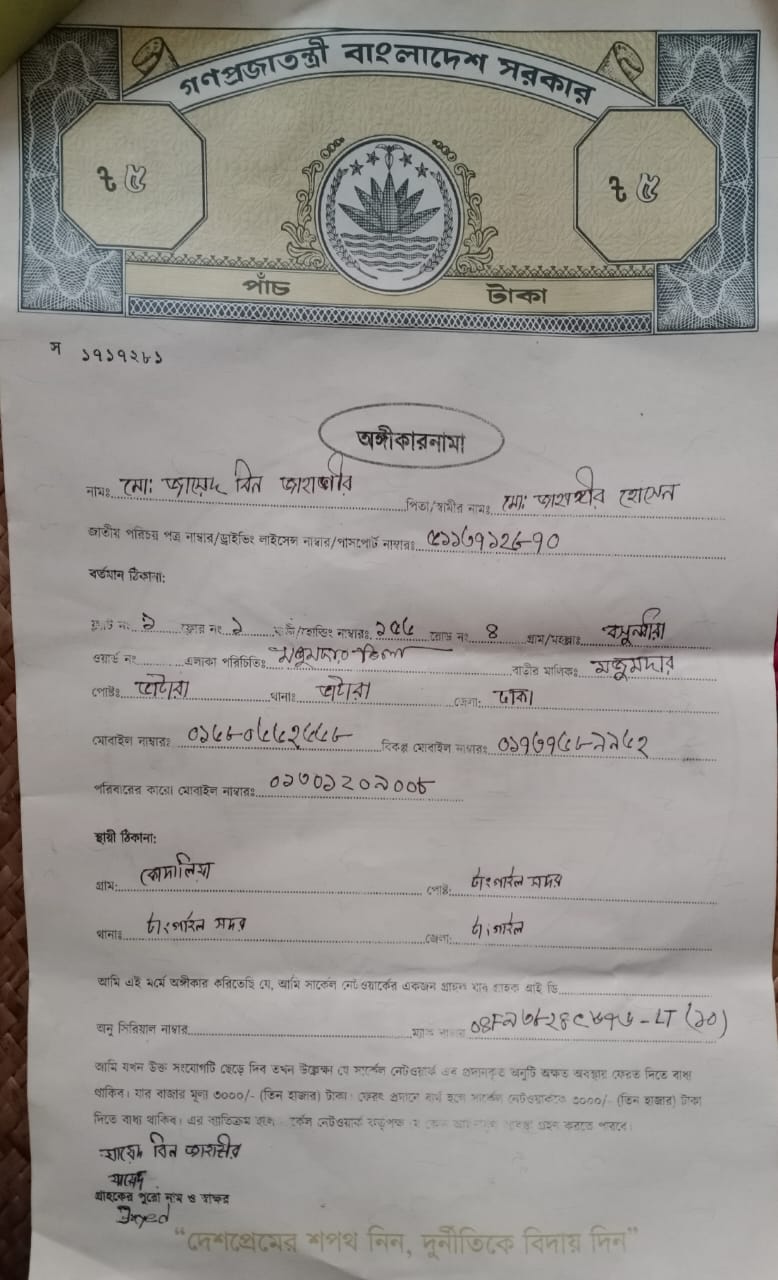 গণপ্রজাতন্ত্রী বাংলাদেশ সরকার
৳ ৫ ৳ ৫
পাঁচ টাকা
স ১৭১৭২৮১
অঙ্গীকারনামা
নামঃ মো: জায়েদ বিন জাহাঙ্গীর পিতা/স্বামীর নামঃ মো: জাহাঙ্গীর হোসেন
জাতীয় পরিচয় পত্র নাম্বার/ড্রাইভিং লাইসেন্স নাম্বার/পাসপোর্ট নাম্বারঃ
বর্তমান ঠিকানা:
ফ্লাট নং ১ ফ্লোর নং ১ বাড়ী/হোল্ডিং নাম্বারঃ রোড নং ৪ গ্রাম/মহল্লাঃ বসুন্ধরা
ওয়ার্ড নং এলাকা পরিচিতিঃ মজুমদার ভিলা বাড়ীর মালিকঃ মজুমদার
পোষ্টঃ ভাটারা থানাঃ ভাটারা জেলা: ঢাকা
মোবাইল নাম্বারঃ বিকল্প মোবাইল নাম্বারঃ
পরিবারের কারো মোবাইল নাম্বারঃ
স্থায়ী ঠিকানা:
গ্রাম: কোদালিয়া পোষ্ট: টাংগাইল সদর
থানাঃ টাংগাইল সদর জেলা: টাংগাইল
আমি এই মর্মে অঙ্গীকার করিতেছি যে, আমি সার্কেল নেটওয়ার্কের একজন গ্রাহক যার গ্রাহক আই ডি
অনু সিরিয়াল নাম্বার ম্যাক নাম্বার
আমি যখন উক্ত সংযোগটি ছেড়ে দিব তখন উল্লেক্ষ্য যে সার্কেল নেটওয়ার্ক এর প্রদানকৃত অনুটি অক্ষত অবস্থায় ফেরত দিতে বাধ্য
থাকিব। যার বাজার মূল্য ৩০০০/- (তিন হাজার) টাকা। ফেরৎ প্রদানে ব্যর্থ হলে সার্কেল নেটওয়ার্ককে ৩০০০/- (তিন হাজার) টাকা
দিতে বাধ্য থাকিব। এর ব্যতিক্রম হলে নেটওয়ার্ক কর্তৃপক্ষ গ্রহন করতে পারবে।
জায়েদ বিন জাহাঙ্গীর
জায়েদ
গ্রাহকের পুরো নাম ও স্বাক্ষর
"দেশপ্রেমের শপথ নিন, দুর্নীতিকে বিদায় দিন"